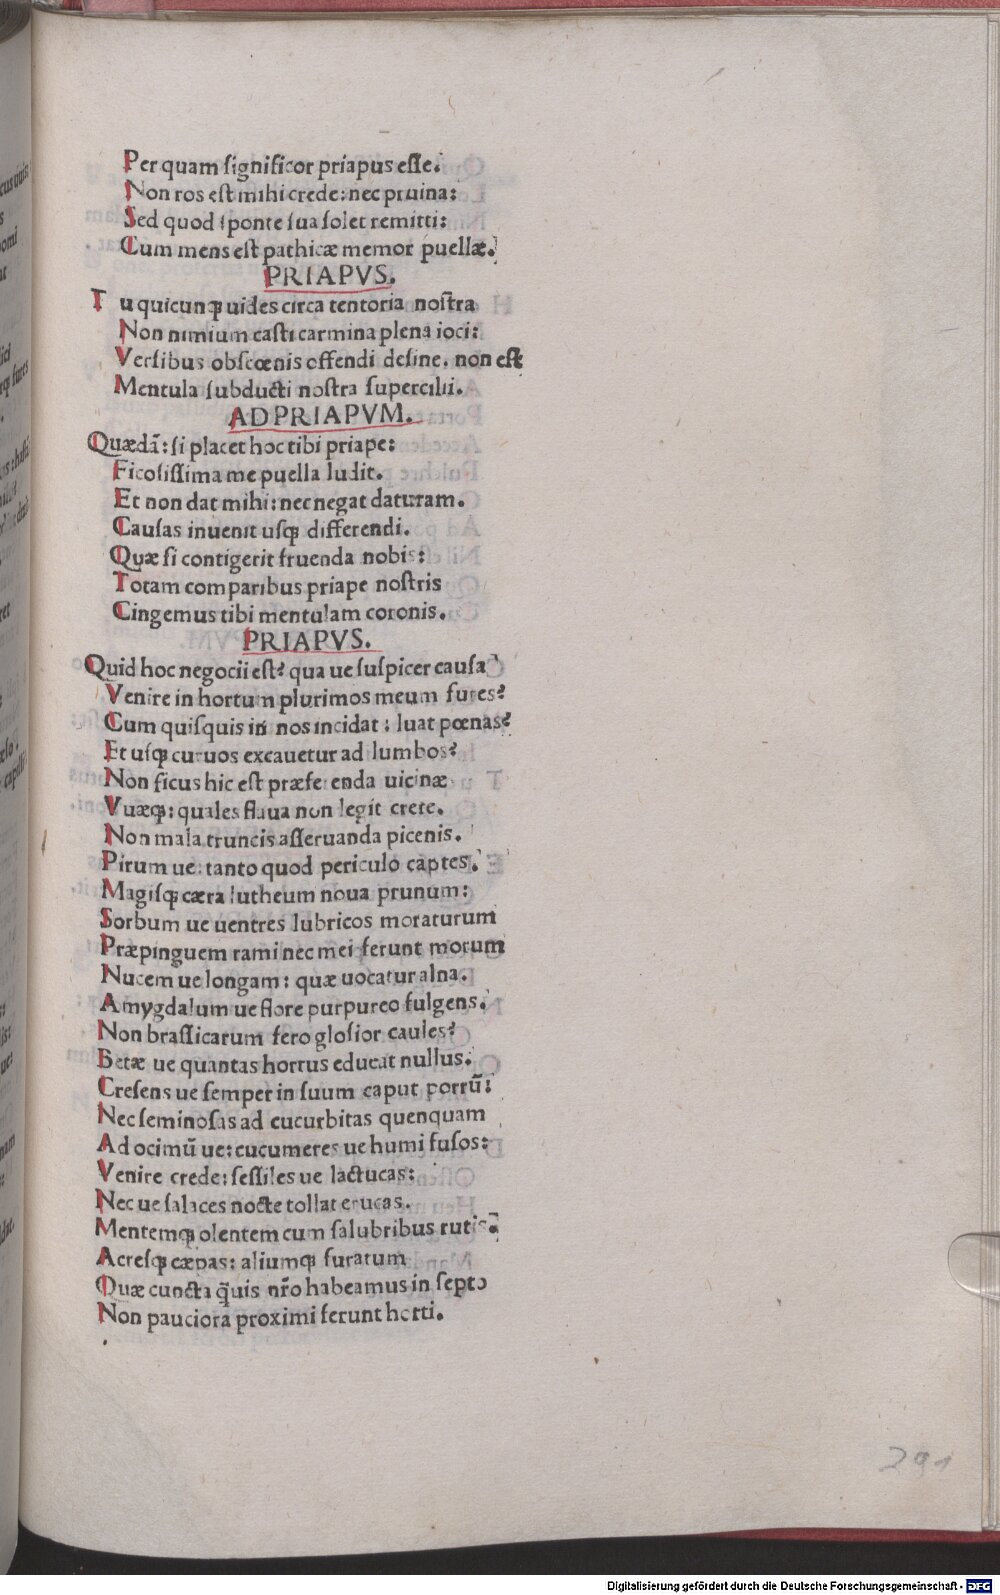 Per quam significor priapus esse.
Non ros est mihi crede: nec pruina:
Sed quod sponte sua solet remitti:
Cum mens est pathicæ memor puellæ.
PRIAPVS.
Tu quicunqꝫ uides circa tentoria nostra
Non nimium casti carmina plena ioci:
Versibus obscœnis offendi desine. non est
Mentula subducti nostra supercilii.
AD PRIAPVM.
Quædã: si placet hoc tibi priape:
Ficosissima me puella ludit.
Et non dat mihi: nec negat daturam.
Causas inuenit usqꝫ differendi.
Quæ si contigerit fruenda nobis:
Totam comparibus priape nostris
Cingemus tibi mentulam coronis.
PRIAPVS.
Quid hoc negocii est? qua ue suspicer causa
Venire in hortum plurimos meum fures?
Cum quisquis in nos incidat: luat pœnas?
Et usqꝫ curuos excauetur ad lumbos?
Non ficus hic est præferenda uicinæ
Vuæqꝫ: quales flaua non legit crete.
Non mala truncis asseruanda picenis.
Pirum ue: tanto quod periculo captes.
Magisqꝫ cæra lutheum noua prunum:
Sorbum ue uentres lubricos moraturum
Præpinguem rami nec mei ferunt morum
Nucem ue longam: quæ uocatur alna.
Amygdalum ue flore purpureo fulgens.
Non brassicarum fero glosior caules?
Betæ ue quantas hortus educat nullus.
Cresens ue semper in suum caput porrũ:
Nec seminosas ad cucurbitas quenquam
Ad ocimũ ue: cucumeres ue humi fusos:
Venire crede: sessiles ue lactucas:
Nec ue salaces nocte tollat erucas.
Mentemqꝫ olentem cum salubribus rutis.
Acresqꝫ cæpas: aliumqꝫ furatum
Quæ cuncta q̃uis nr̃o habeamus in septo
Non pauciora proximi ferunt horti.
291
Digitalisierung gefördert durch die Deutsche Forschungsgemeinschaft - DFG